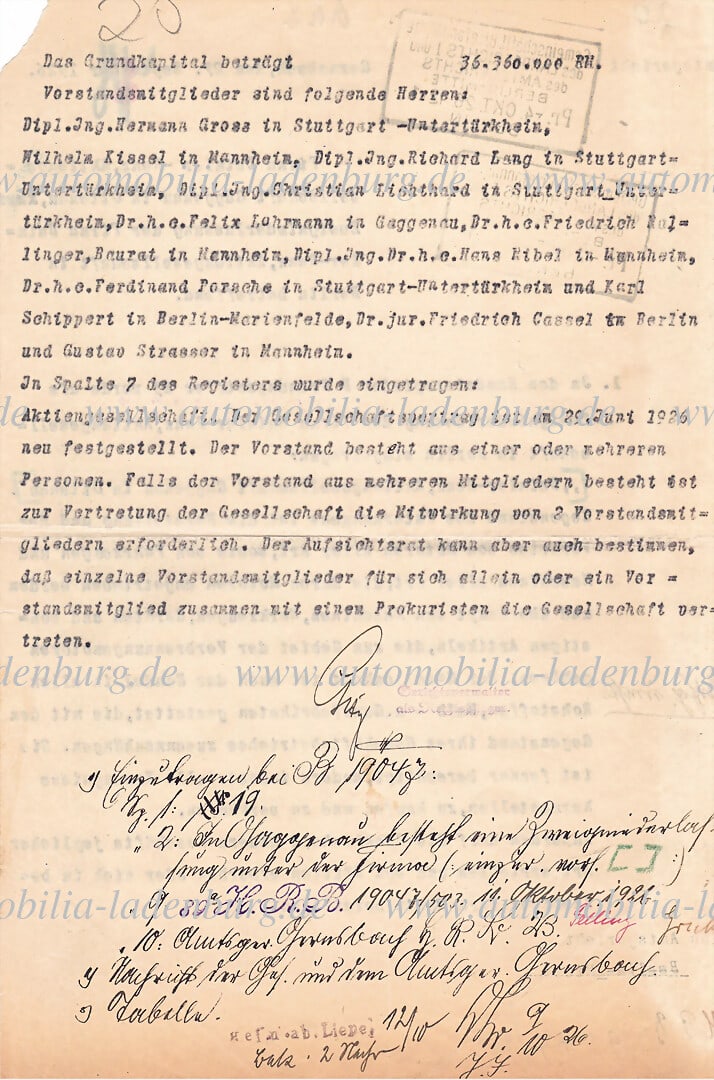 20
Das Grundkapital beträgt 36.360.000 RM.
Vorstandsmitglieder sind folgende Herren:
Dipl.Ing.Hermann Gross in Stuttgart -Untertürkheim,
Wilhelm Kissel in Mannheim, Dipl.Ing.Richard Lang in Stuttgart=
www.automobilia-ladenburg.de www.automobilia-ladenburg.de
Untertürkheim, Dipl.Ing.Christian Lichthard in Stuttgart_Unter-
türkheim,Dr.h.c.Felix Lohrmann in Gaggenau,Dr.h.c.Friedrich Nal-
linger,Baurat in Mannheim,Dipl.Ing.Dr.h.c.Hans Nibel in Mannheim,
Dr.h.c.Ferdinand Porsche in Stuttgart-Untertürkheim und Karl
Schippert in Berlin-Marienfelde,Dr.jur.Friedrich Cassel in Berlin
und Gustav Strasser in Mannheim.
In Spalte 7 des Registers wurde eingetragen:
Aktiengesellschaft. Der Gesellschaftsvertrag ist am 29.Juni 1926
ladenburg.de www.automobilia-ladenburg.de
neu festgestellt. Der Vorstand besteht aus einer oder mehreren
Personen. Falls der Vorstand aus mehreren Mitgliedern besteht ist
zur Vertretung der Gesellschaft die Mitwirkung von 2 Vorstandsmit=
gliedern erforderlich. Der Aufsichtsrat kann aber auch bestimmen,
daß einzelne Vorstandsmitglieder für sich allein oder ein Vor =
standsmitglied zusammen mit einem Prokuristen die Gesellschaft ver-
treten.
ladenburg.de www.automobilia-ladenburg.de
1) Einzutragen bei B 19047:
Sp. 1: 19.
" 2: In Gaggenau besteht eine Zweigniederlas-
sung unter der Firma (: einger. vorh. [ ] :)
" 9 H. R. B. 19047 11. Oktober 1926
www.automobilia-ladenburg.de www.automobilia-ladenburg.de
" 10: Amtsger. Gernsbach H. R. 23.
2) Nachricht der Ges. und dem Amtsger. Gernsbach.
3) Tabelle.
12/10
9
10 26.